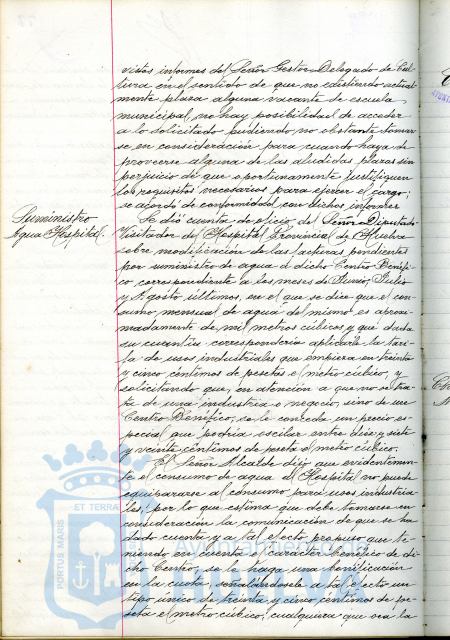 vistos informes del Señor Gestor Delegado de Cul-
tura en el sentido de que no existiendo actual-
mente plaza alguna vacante de escuela
municipal, no hay posibilidad de acceder
a lo solicitado pudiendo no obstante tomar
se en consideración para cuando haya de
proveerse alguna de las aludidas plazas sin
perjuicio de que oportunamente justifiquen
los requisitos necesarios para ejercer el cargo;
se acordó de conformidad con dichos informes.
Suministro
Agua Hospital.
Se dió cuenta de oficio del Señor Diputado
Visitador del Hospital Provincial de Huelva
sobre modificación de las facturas pendientes
por suministro de agua a dicho Centro Benéfi-
co, correspondiente a los meses de Junio, Julio
y Agosto últimos, en el que se dice que el con-
sumo mensual de agua del mismo es aproxi-
madamente de mil metros cúbicos y que dada
su cuantía correspondería aplicarle la tari-
fa de usos industriales que empieza en treinta
y cinco céntimos de pesetas el metro cúbico, y
solicitando que, en atención a que no se tra-
ta de una industria o negocio, sino de un
Centro Benéfico, se le conceda un precio es-
pecial que podría oscilar entre diez y siete
y veinte céntimos de peseta el metro cúbico.
El Señor Alcalde dijo que evidentemen-
te el consumo de agua del Hospital no puede
equipararse al consumo para usos industria-
les, por lo que estima que debe tomarse en
consideración la comunicación de que se ha
dado cuenta y a tal efecto propuso que te-
niendo en cuenta el carácter benéfico de di-
cho Centro, se le haga una bonificación
en la cuota, señalándosele a tal efecto un
tipo único de treinta y cinco céntimos de pe-
seta el metro cúbico, cualquiera que sea la
PORTUS MARIS
ET TERRAE
Ayuntamiento de
HUELVA